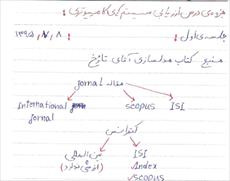 جزوه‌ی درس ارزیابی سیستم‌های کامپیوتری
جلسه‌ی اول: ۱۳۹۵/۷/۸
منبع کتاب مدلسازی آقای
مقاله jornal
International jornal
scopus
ISI
کنفرانس
بین‌المللی
(ارزشی ندارد)
ISI
Index
scopus